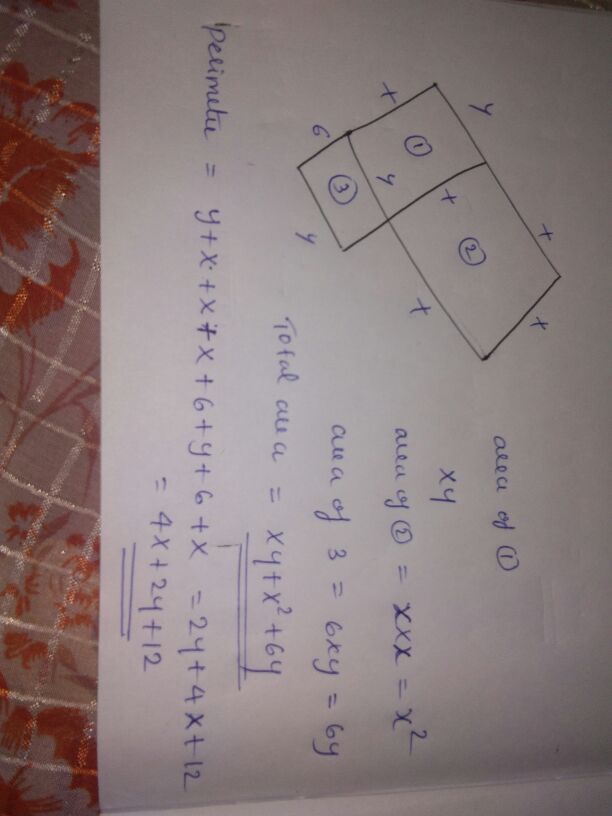 y x
x ① x ② x
6 y x
③
y
area of ①
xy
area of ② = x×x = x²
area of 3 = 6xy = 6y
Total area = xy + x² + 6y
Perimeter = y+x+x+x+6+y+6+x = 2y+4x+12
= 4x+2y+12